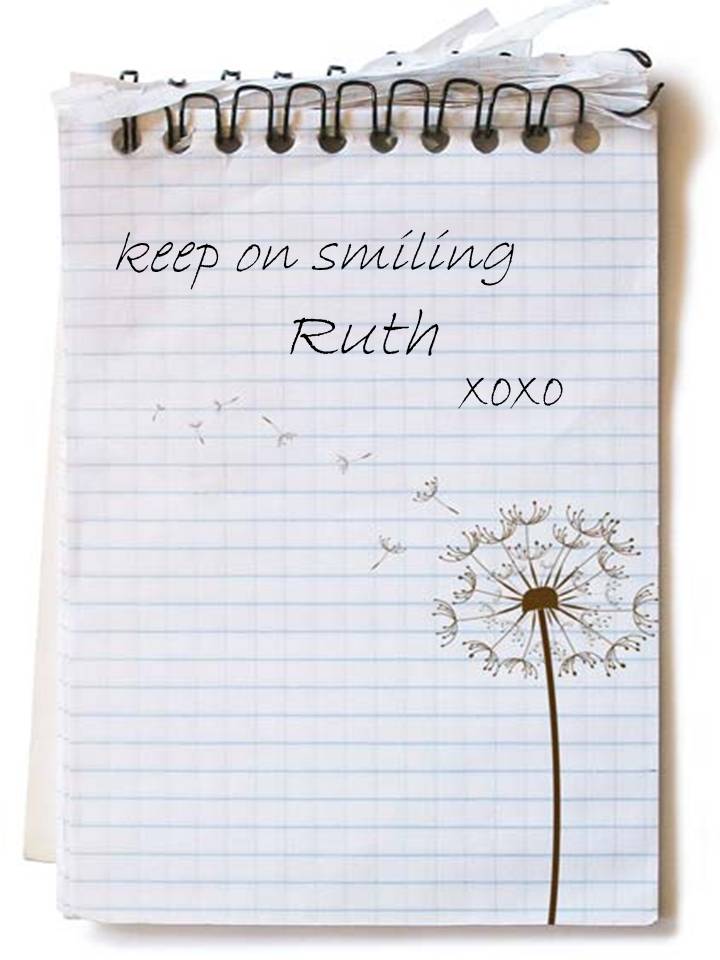 keep on smiling
Ruth
xoxo